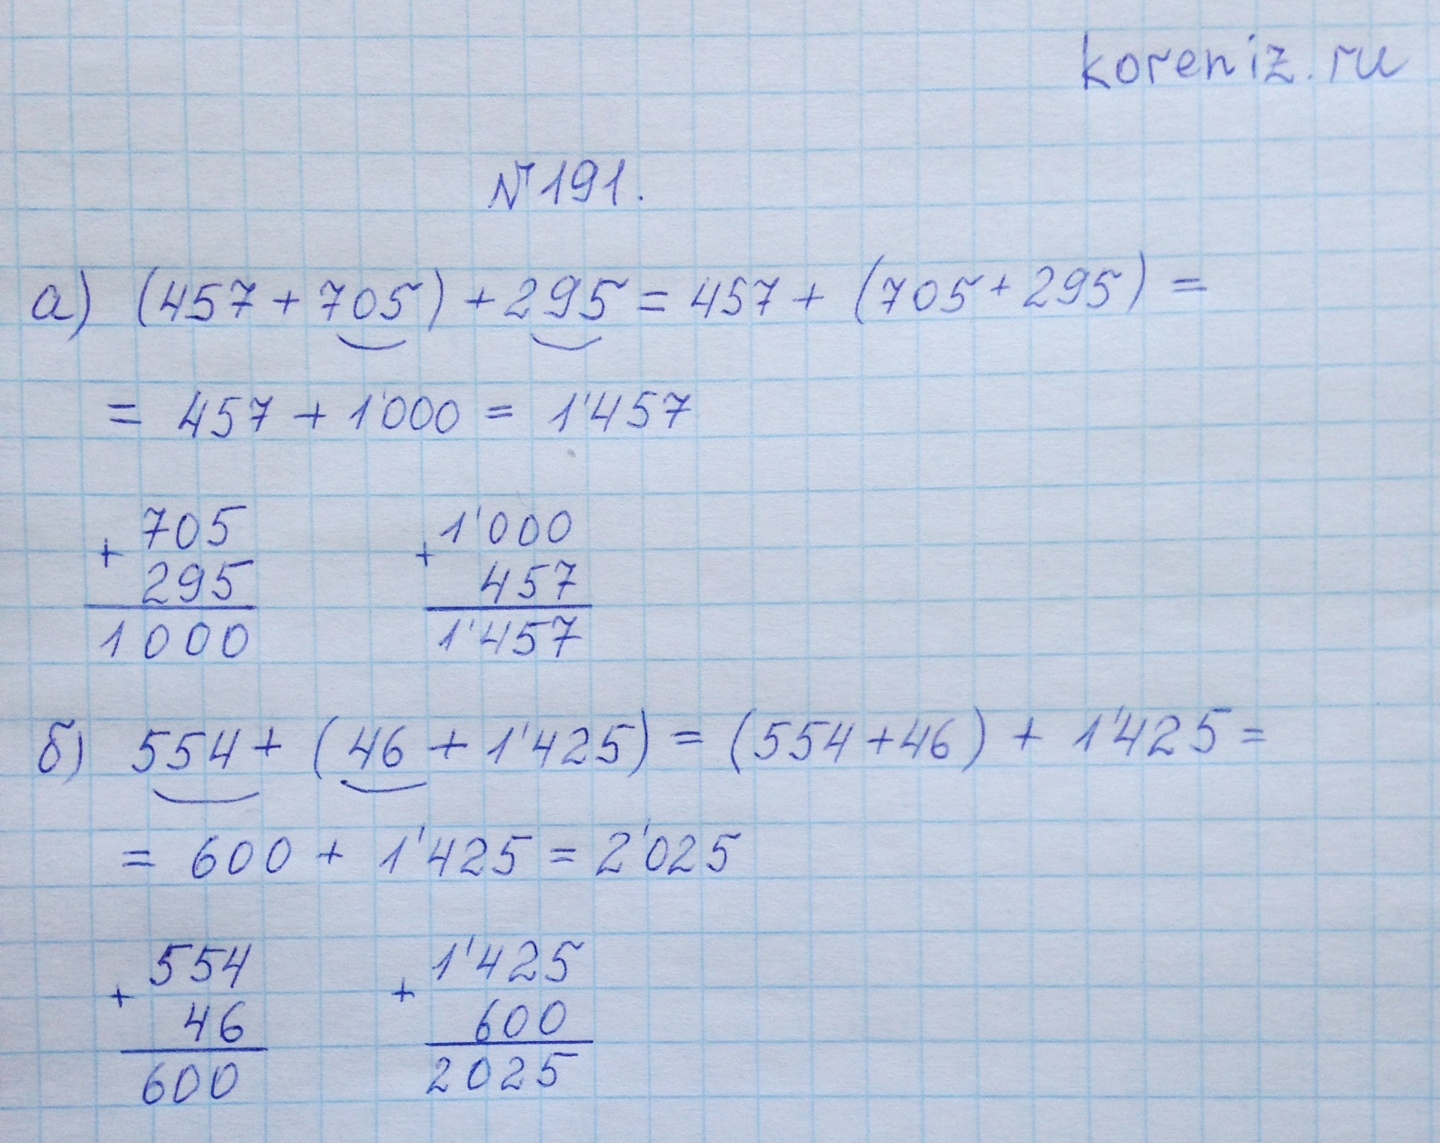 koreniz.ru
№191.
а) (457 + 705) + 295 = 457 + (705 + 295) =
= 457 + 1'000 = 1'457
+ 705 295 1000
+ 1'000 457 1'457
б) 554 + (46 + 1'425) = (554 + 46) + 1'425 =
= 600 + 1'425 = 2'025
+ 554 46 600
+ 1'425 600 2025